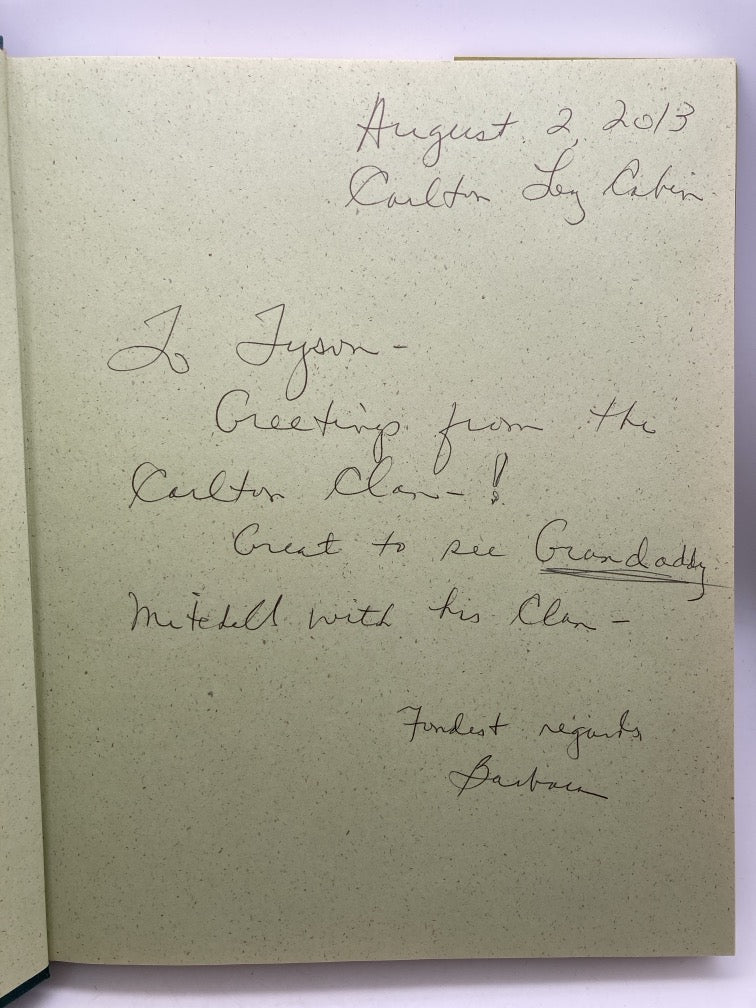 August 2, 2013
Carlton Log Cabin
To Tyson -
Greetings from the
Carlton Clan - !
Great to see Grandaddy
Mitchell with his Clan -
Fondest regards
Barbara